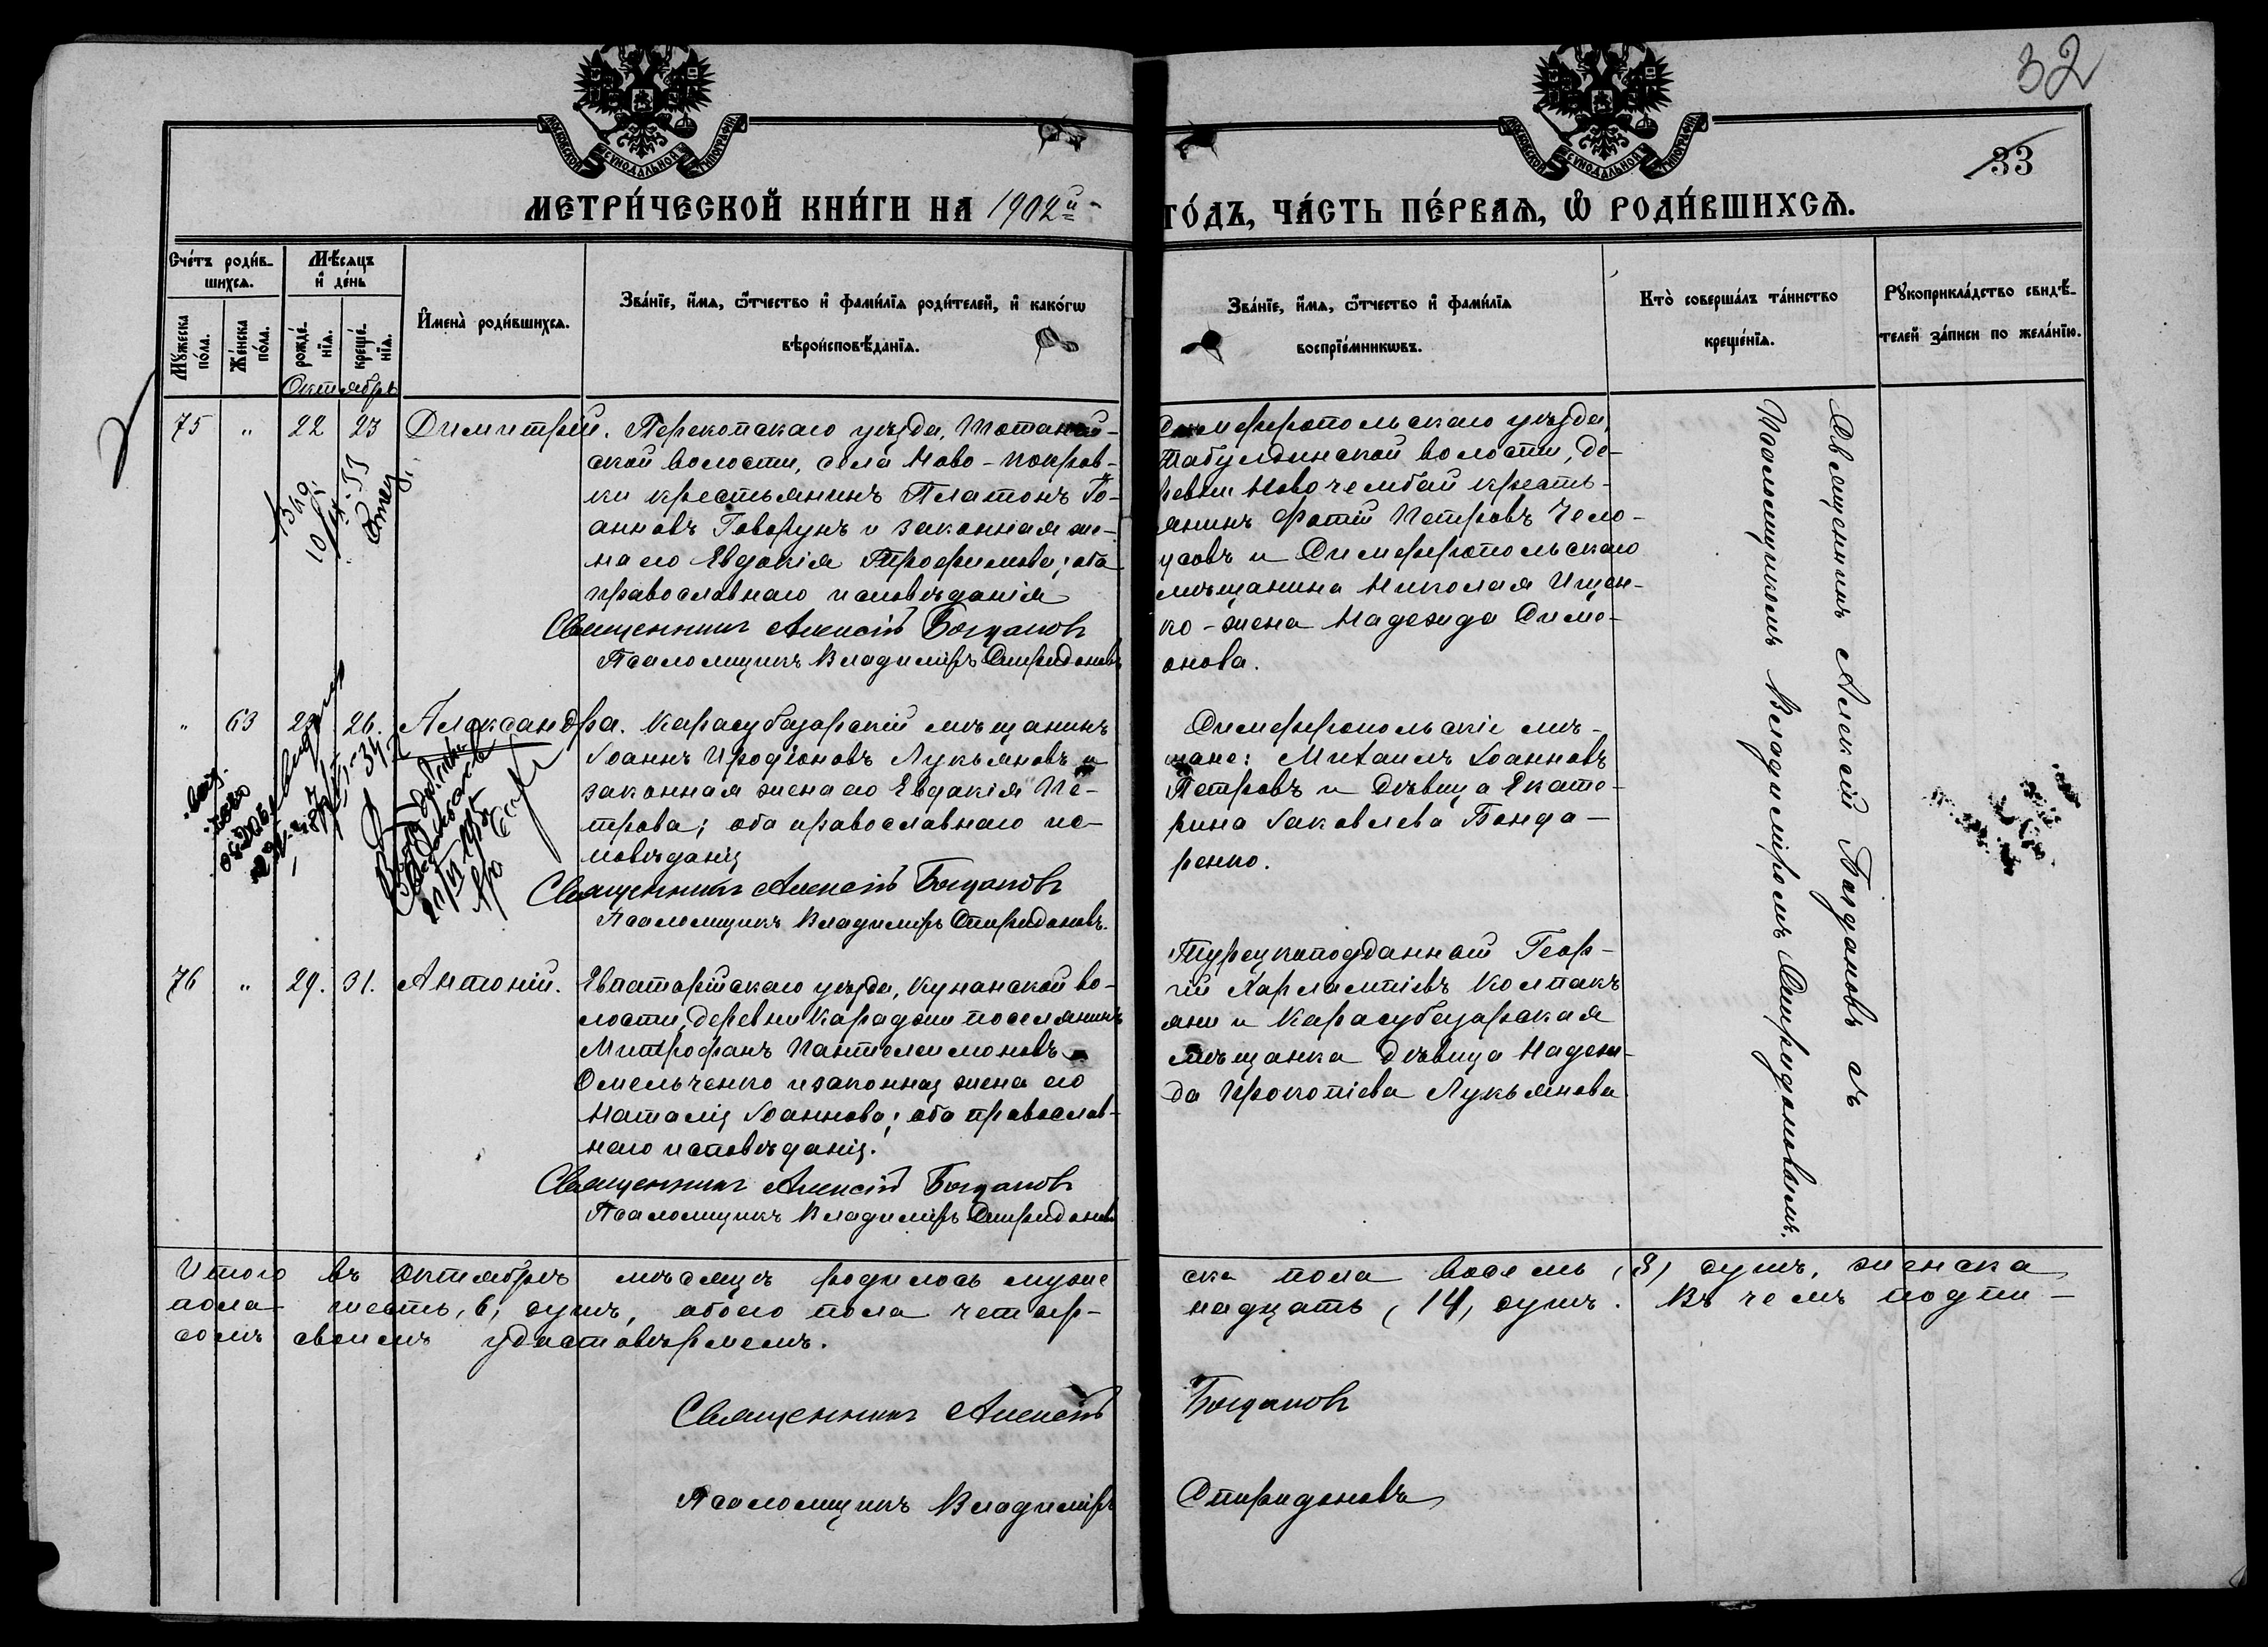 32
33
МЕТРИ́ЧЕСКОЙ КНИ́ГИ НА 1902й
ГО́ДЪ, ЧА́СТЬ ПЕ́РВАѦ, Ѡ҆ РОДИ́ВШИХСѦ.
Сче́тъ роди́в-
шихсѧ.
Мꙋ́жеска по́ла.
Же́нска по́ла.
Мѣ́сѧцъ
и҆ де́нь
рожде́-
нїѧ.
креще́-
нїѧ.
И҆мена̀ роди́вшихсѧ.
Зва́нїе, и҆́мѧ, ѻ҆́тчество и҆ фами́лїѧ роди́телей, и҆ како́гѡ
вѣроисповѣ́данїѧ.
Зва́нїе, и҆́мѧ, ѻ҆́тчество и҆ фами́лїѧ
воспрїе́мникѡвъ.
Кто̀ соверша́лъ та́инство
креще́нїѧ.
Рꙋкоприкла́дство свидѣ́-
телей за́писи по жела́нїю.
Октябрь
75 " 22 23 Димитрій. Перекопскаго уѣзда,
ской волости, села Ново-Покров-
ки крестьянинъ Платонъ Іо-
анновъ Говорунъ и законная же-
на его Евдокія Трофимова; оба
православнаго исповѣданія
Священникъ Алексій Богдановъ
Псаломщикъ Владиміръ Спиридоновъ
Симферопольскаго уѣзда,
Табулдинской волости, де-
ревни Новочембай кресть-
янинъ Фотій Петровъ Чело-
усовъ и Симферопольскаго
мѣщанина Николая Ищен-
ко-жена Надежда Симе-
онова.
" 63 26. Александра. Карасубазарскій мѣщанинъ
Іоаннъ Иродіоновъ Лукьяновъ и
законная жена его Евдокія Пе-
трова; оба православнаго ис-
повѣданія
Священникъ Алексій Богдановъ
Псаломщикъ Владиміръ Спиридоновъ.
Симферопольскіе мѣ-
щане: Михаилъ Іоанновъ
Петровъ и дѣвица Екате-
рина Іаковлева Бонда-
ренко.
76 " 29. 31. Антоній. Евпаторійскаго уѣзда, Кунанской во-
лости, деревни Караджи поселянинъ
Митрофанъ Пантелеимоновъ
Омельченко и законная жена его
Наталія Іоаннова; оба православ-
наго исповѣданія.
Священникъ Алексій Богдановъ
Псаломщикъ Владиміръ Спиридоновъ
Турецкоподданный Геор-
гій Харлампіевъ Колпакъ
яни и Карасубазарская
мѣщанка дѣвица Надеж-
да Прокопіева Лукьянова
Священникъ Алексій Богдановъ съ
Псаломщикомъ Владиміромъ Спиридоновымъ.
Итого въ Октябрѣ мѣсяцѣ родилось муже
ска пола восемь (8) душъ, женска
пола шесть, 6, душъ, обоего пола четыр-
надцать (14) душъ. Въ чемъ подпи-
сомъ своимъ удостовѣряемъ.
Священникъ Алексій Богдановъ
Псаломщикъ Владиміръ Спиридоновъ